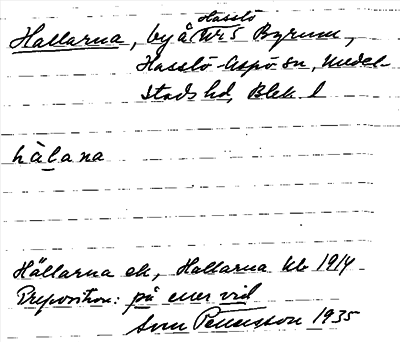 Hasslö
Hallarna, by å Nr 5 Byrum,
Hasslö-Aspö sn, Medel-
stads hd, Blek. l
hàlana
Hällarna ek, Hallarna kb 1914
Preposition: på eller vid
Sven Pettersson 1935